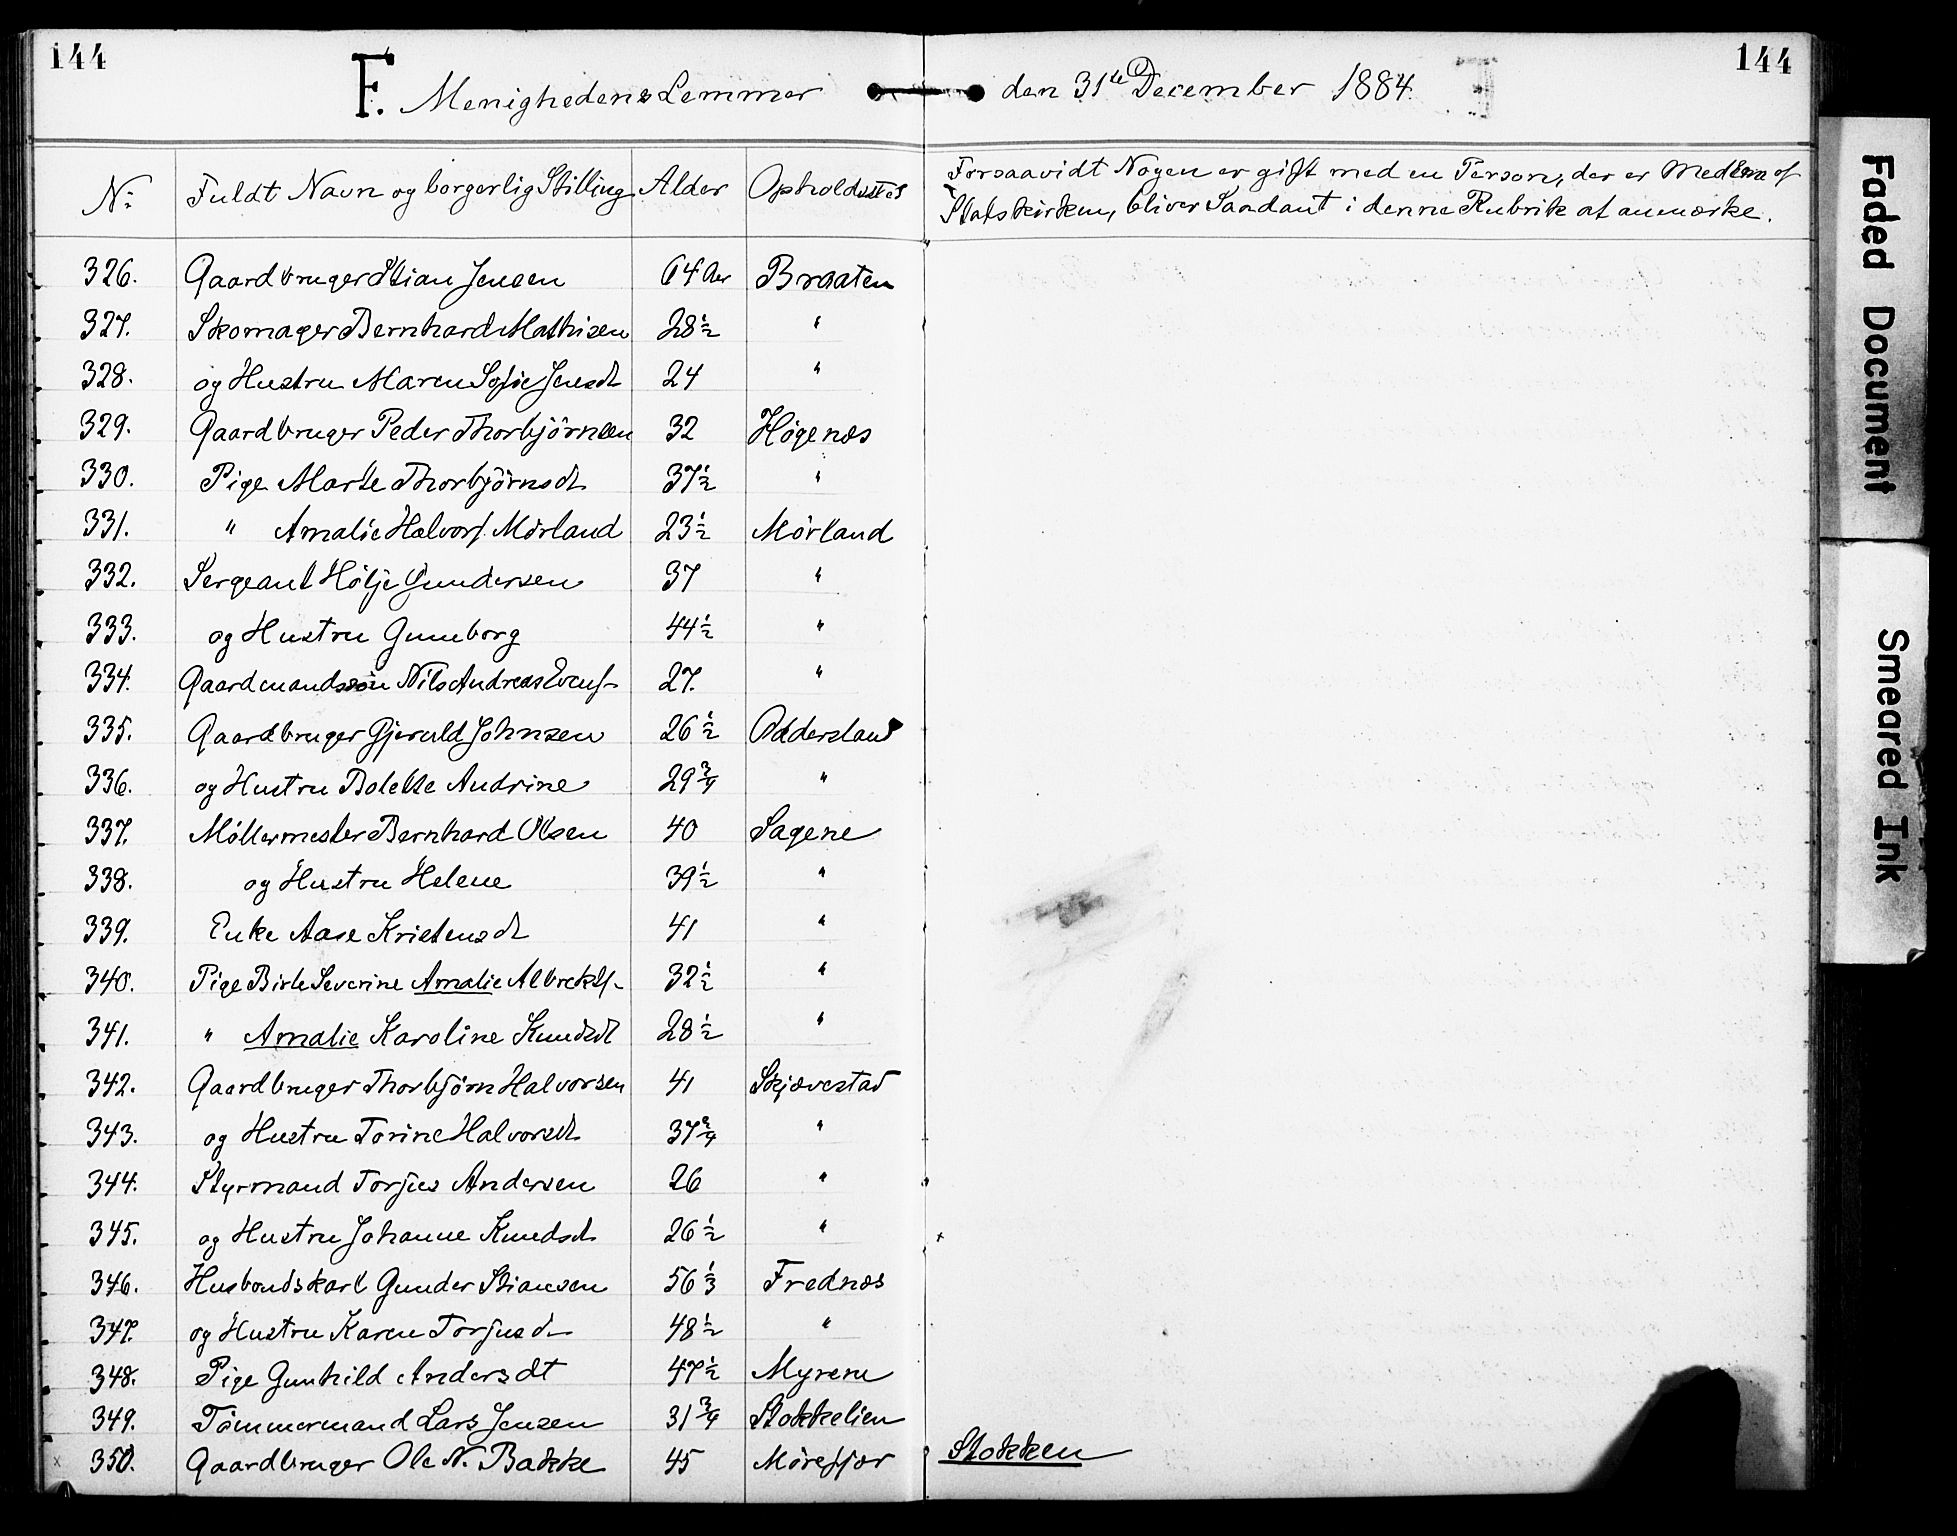 144
F. Menighedens Lemmer den 31te December 1884.
144
No Fuldt Navn og borgerlig Stilling Alder Opholdssted Forsaavidt Nogen er gift med en Person, der er Medlem af
Statskirken, bliver Saadant i denne Rubrik at anmærke.
326. Gaardbruger Stian Jensen 64 Aar Braaten
327. Skomager Bernhard Mathisen 28½ "
328. og Hustru Maren Sofie Jensdt 24 "
329. Gaardbruger Peder Thorbjörnsen 32 Högenæs
330. Pige Marte Thorbjörnsdt. 37½ "
331. " Amalie Halvors. Mörland 23½ Mörland
332. Sergeant Hölje Gundersen 37 "
333. og Hustru Gunuborg 44½ "
334. Gaardmandssön Nils Andreas Evens. 27. "
335. Gaardbruger Gjeruld Johnsen 26½ Oddersland
336. og Hustru Bolette Andrine 29¾ "
337. Möllermester Bernhard Olsen 40 Sagene
338. og Hustru Helene 39½ "
339. Enke Aase Kristensdt 41 "
340. Pige Birte Severine Amalie Albrekts. 32½ "
341. " Amalie Karoline Knudsdt 28½ "
342. Gaardbruger Thorbjörn Halvorsen 41 Skjævestad
343. og Hustru Torine Halvorsdt. 37¾ "
344. Styrmand Torjus Andersen 26 "
345. og Hustru Johanne Knudsdt. 26½ "
346. Husbondskarl Gunder Stiansen 56⅓ Frednæs
347. og Hustru Karen Torjusd. 48½ "
348. Pige Gunhild Andersdt 47½ Myrene
349. Tömmermand Lars Jensen 31¾ Stokkelien
350. Gaardbruger Ole N. Bakke 45 Mörefjær Stokken
Faded Document
Smeared Ink